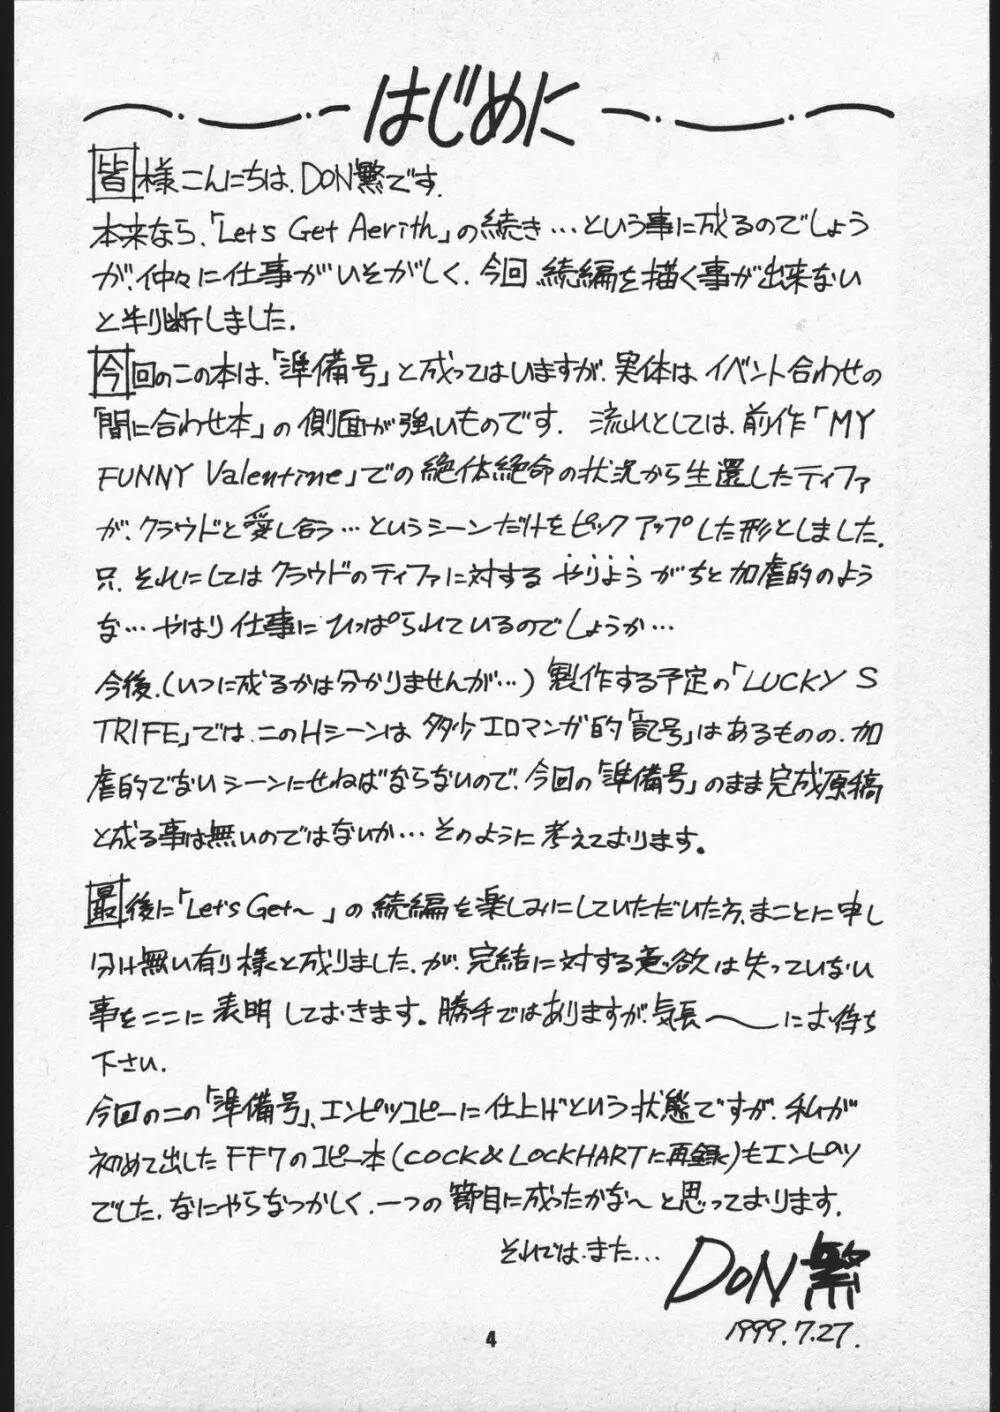 はじめに
皆様こんにちは、DON繁です.
本来なら、「Let's Get Aerith」の続き…という事に成るのでしょう
が、仲々に仕事がいそがしく、今回、続編を描く事が出来ない
と判断しました.
今回のこの本は、「準備号」と成ってはいますが、実体はイベント合わせの
「間に合わせ本」の側面が強いものです. 流れとしては、前作「MY
FUNNY Valentine」での絶体絶命の状況から生還したティファ
が、クラウドと愛し合う…というシーンだけをピックアップした形としました.
只、それにしてはクラウドのティファに対するやりようがちと加虐的のよう
な…やはり仕事にひっぱられているのでしょうか…
今後、(いつに成るかは分かりませんが…)製作する予定の「LUCKY S
TRIFE」では、このHシーンは多少エロマンガ的「記号」はあるものの、加
虐的でないシーンにせねばならないので、今回の「準備号」のまま完成原稿
と成る事は無いのではないか…そのように考えております。
最後に「Let's Get〜」の続編を楽しみにしていただいた方、まことに申し
分け無い有り様くと成りました、が、完結に対する意欲は失っていない
事をここに表明しておきます。勝手ではありますが、気長〜にお待ち
下さい.
今回のこの「準備号」、エンピツコピーに仕上げという状態ですが、私が
初めて出したFF7のコピー本(COCK&LOCKHARTに再録)もエンピツ
でした、なにやらなつかしく、一つの節目に成ったかな〜と思っております.
それでは、また…
DON繁
1999.7.27.
4